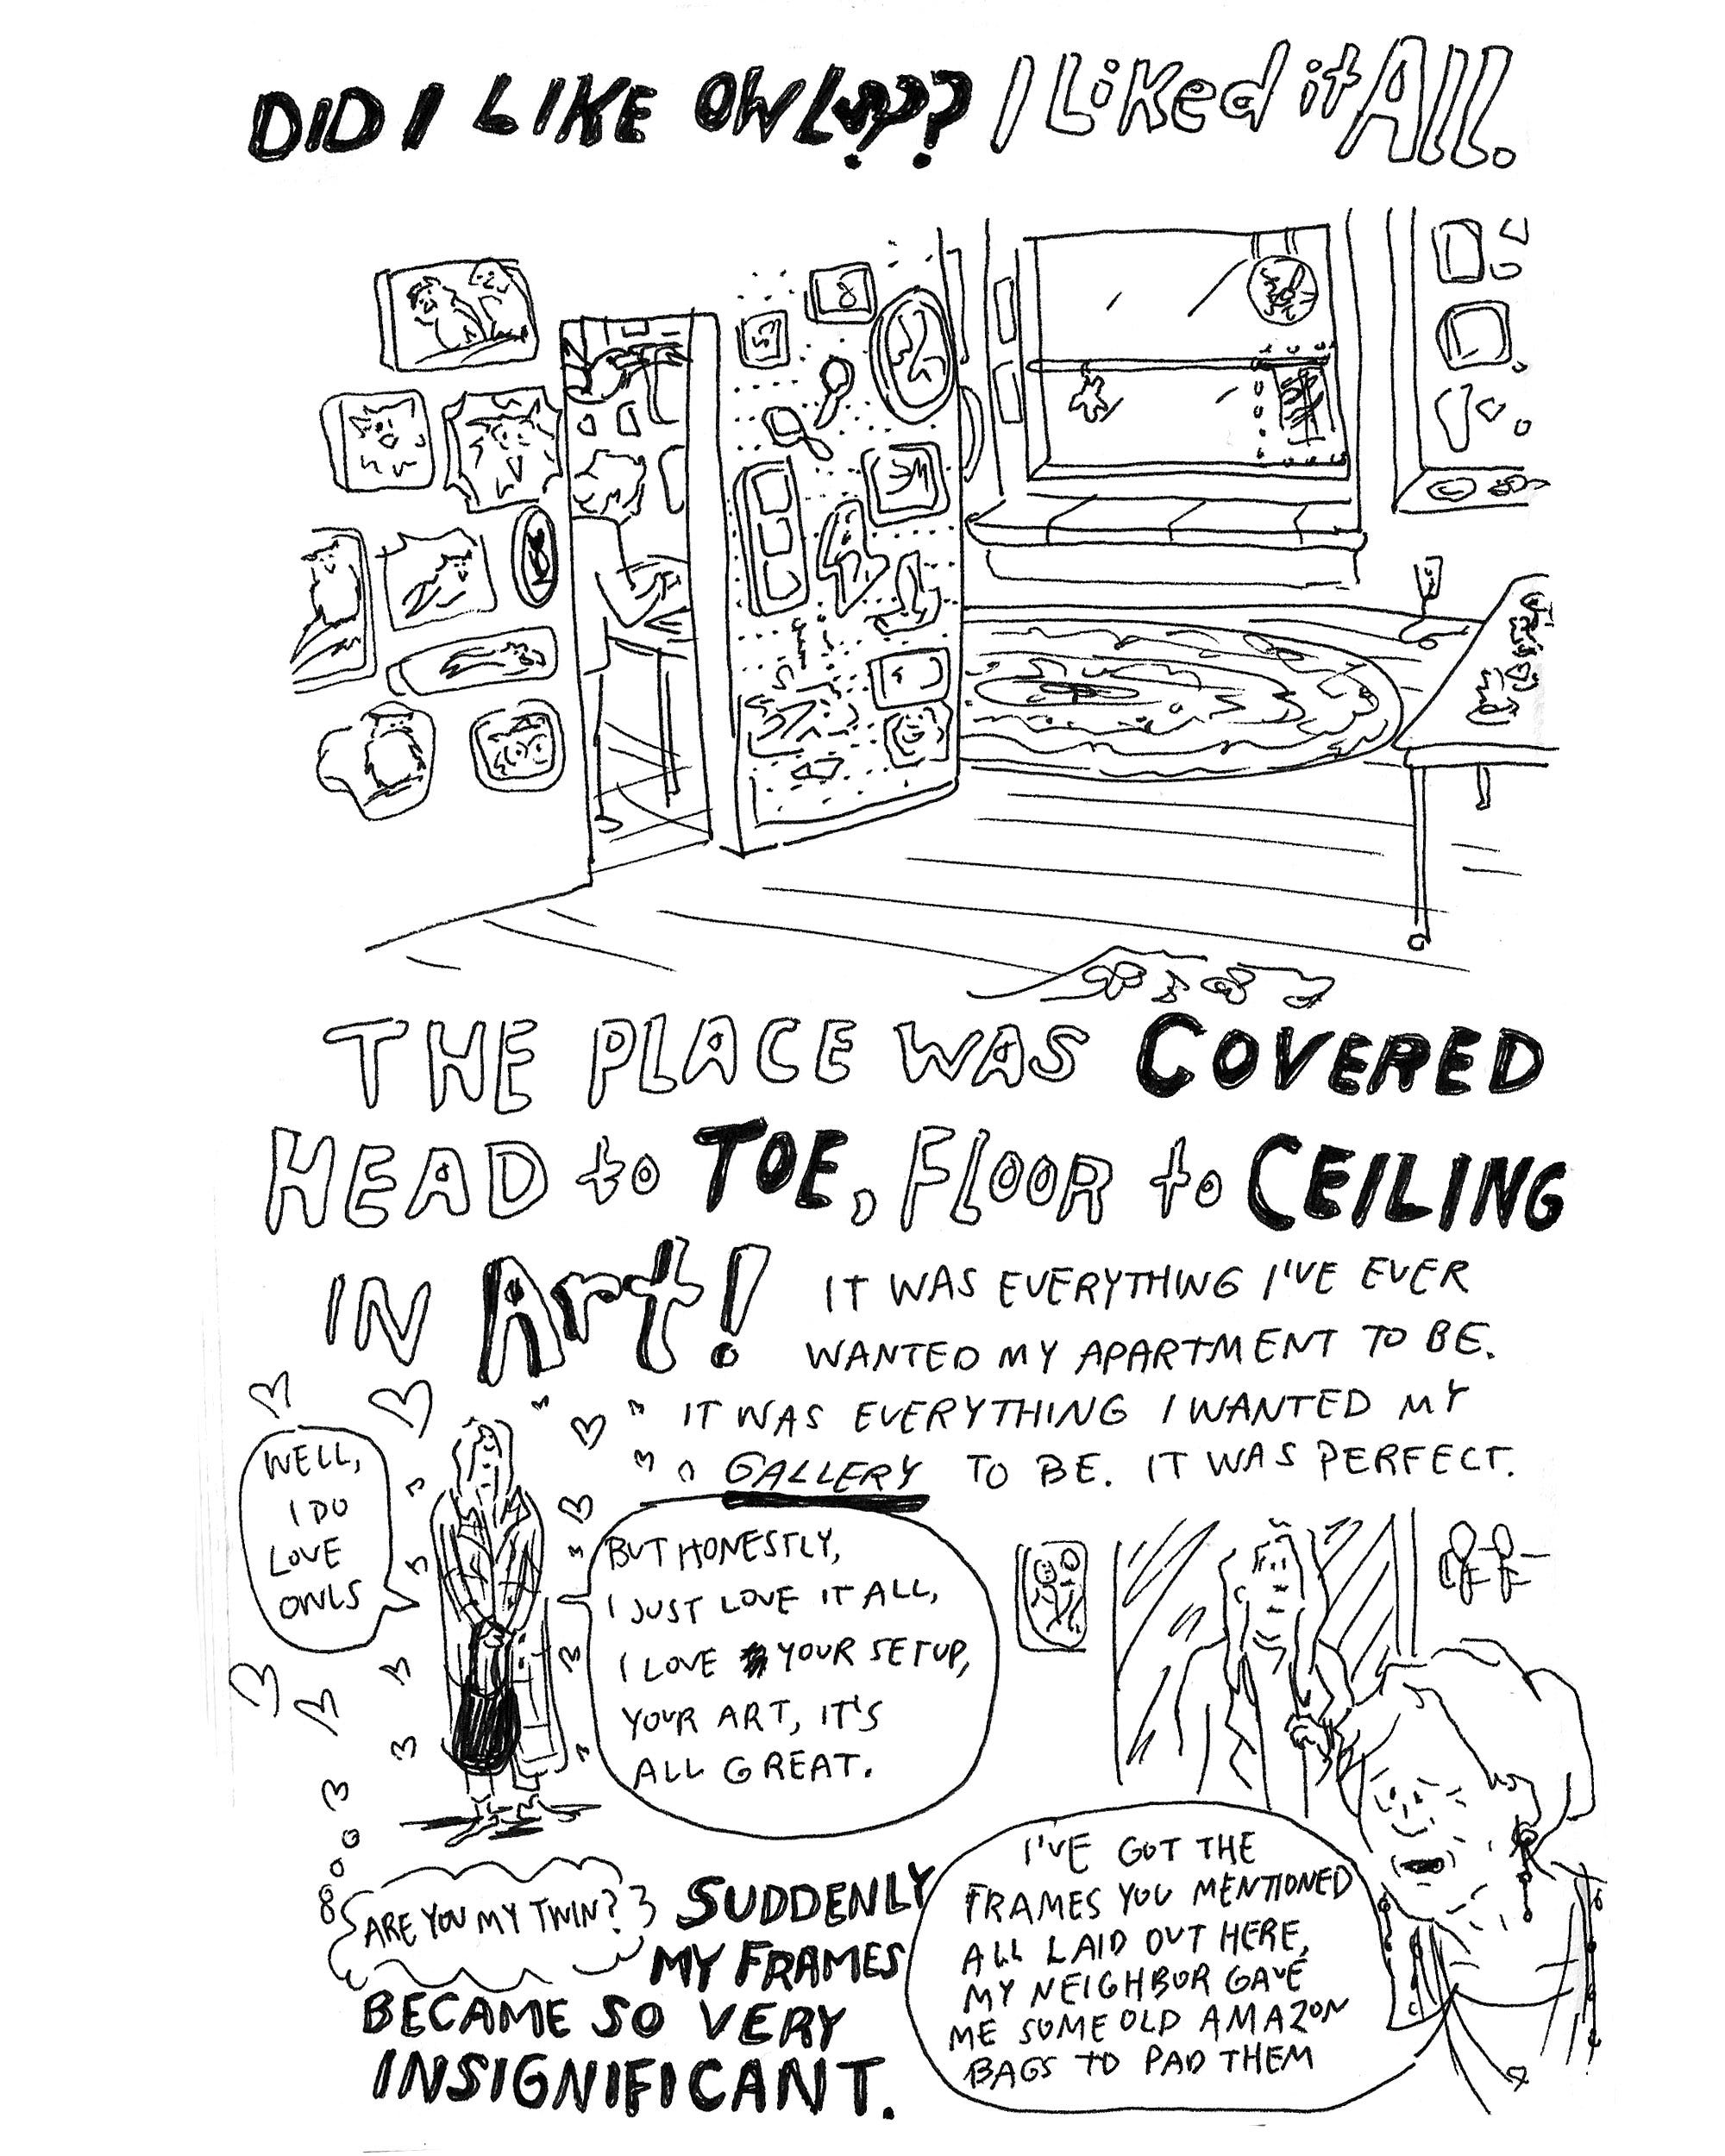 DID I LIKE OWLS??? I LiKed it All.
THE PLACE WAS COVERED
HEAD to TOE, FLOOR to CEILING
IN Art!
IT WAS EVERYTHING I'VE EVER
WANTED MY APARTMENT TO BE.
IT WAS EVERYTHING I WANTED MY
GALLERY TO BE. IT WAS PERFECT.
WELL,
I DO
LOVE
OWLS
BUT HONESTLY,
I JUST LOVE IT ALL,
I LOVE YOUR SETUP,
YOUR ART, IT'S
ALL GREAT.
ARE YOU MY TWIN?
SUDDENLY
MY FRAMES
BECAME SO VERY
INSIGNIFICANT.
I'VE GOT THE
FRAMES YOU MENTIONED
ALL LAID OUT HERE,
MY NEIGHBOR GAVE
ME SOME OLD AMAZON
BAGS TO PAD THEM